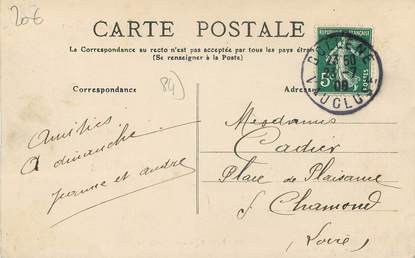 20€
CARTE POSTALE
La Correspondance au recto n'est pas acceptée par tous les pays étran
(Se renseigner à la Poste)
Correspondance
84
Adres
RÉPUBLIQUE FRANÇAISE
5
POSTES
VAUCLUSE
09
Amitiés.
A dimanche
Jeanne et andré
Mesdames
Cadier
Place de Plaisance
St Chamond
Loire